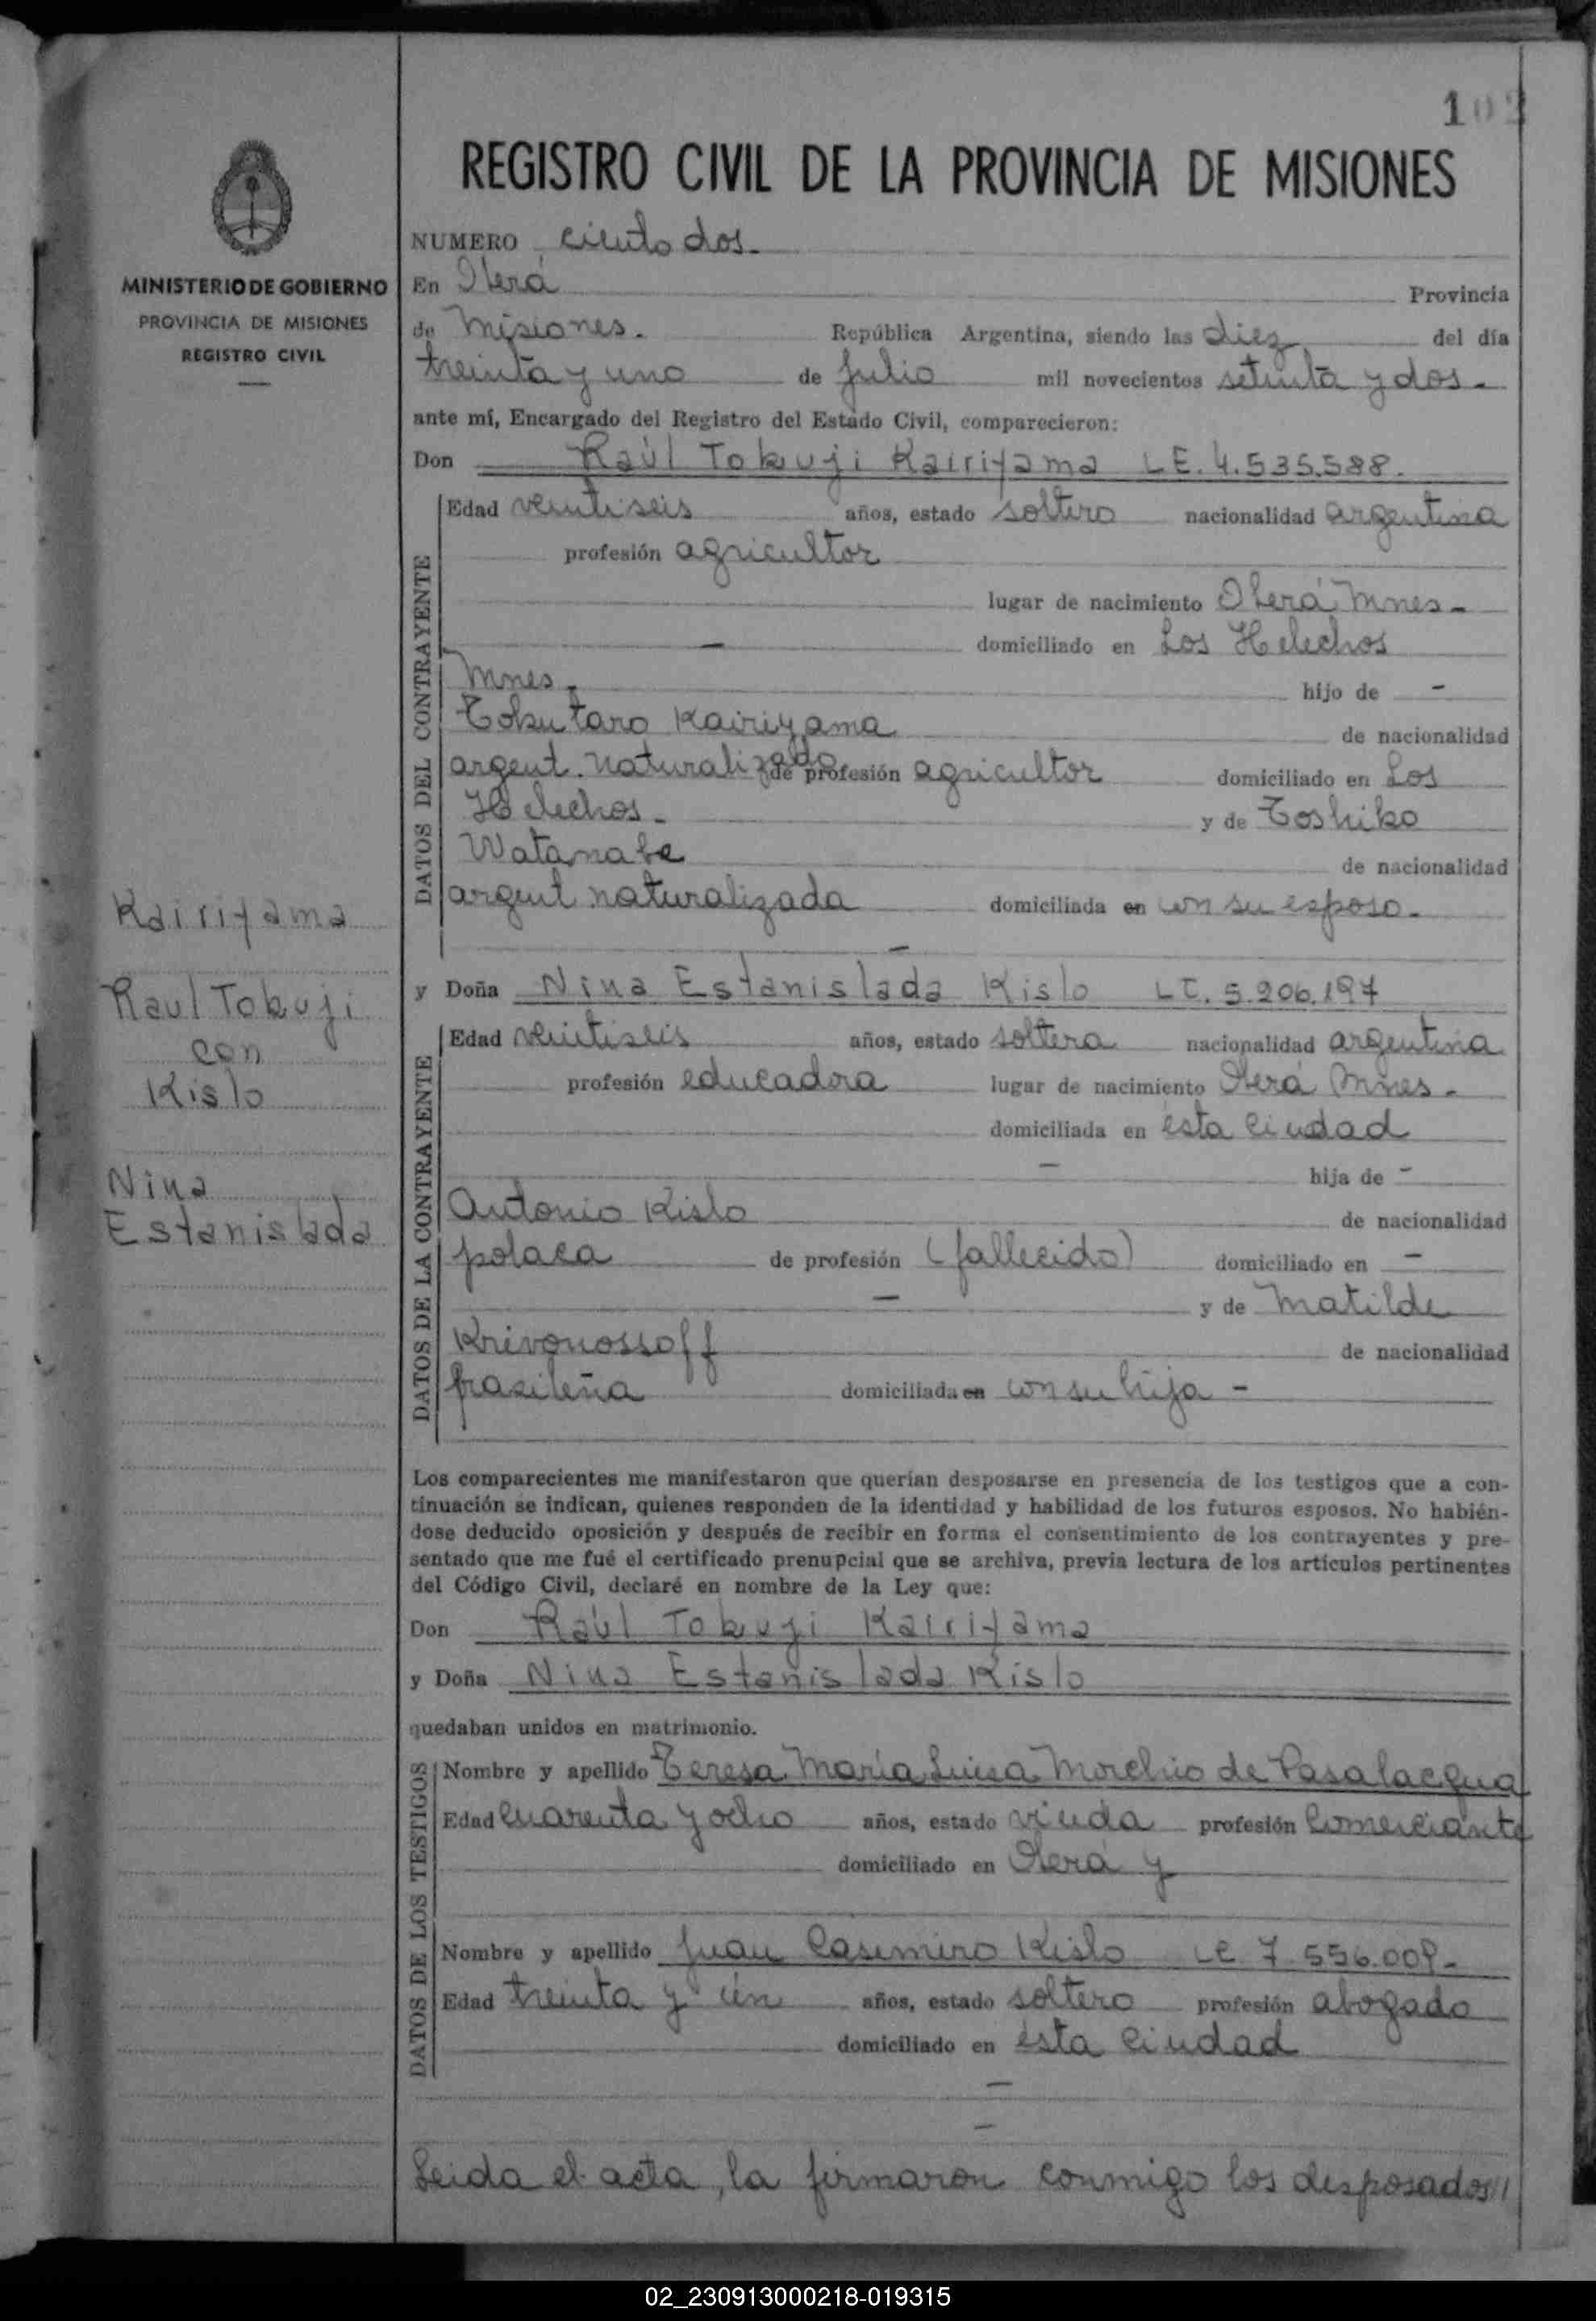 102
REGISTRO CIVIL DE LA PROVINCIA DE MISIONES
MINISTERIO DE GOBIERNO
PROVINCIA DE MISIONES
REGISTRO CIVIL
NUMERO ciento dos.
En Oberá Provincia
de Misiones. República Argentina, siendo las diez del día
treinta y uno de julio mil novecientos setenta y dos.
ante mí, Encargado del Registro del Estado Civil, comparecieron:
Don Raúl Tokuji Kairiyama LE. 4.535.588.
DATOS DEL CONTRAYENTE
Edad veintiseis años, estado soltero nacionalidad argentina
profesión agricultor
lugar de nacimiento Oberá Mnes-
- domiciliado en Los Helechos
Mnes- hijo de -
Tokutaro Kairiyama de nacionalidad
argent. naturalizado de profesión agricultor domiciliado en Los
Helechos- y de Toshiko
Watanabe de nacionalidad
argent naturalizada domiciliada en con su esposo-
-
Kairiyama
Raul Tokuji
con
Kislo
Nina
Estanislada
y Doña Nina Estanislada Kislo LC. 5.206.197
DATOS DE LA CONTRAYENTE
Edad veintiseis años, estado soltera nacionalidad argentina
profesión educadora lugar de nacimiento Oberá Mnes-
domiciliada en ésta ciudad
- hija de -
Antonio Kislo de nacionalidad
polaca de profesión (fallecido) domiciliado en -
- y de Matilde
Krivonossoff de nacionalidad
brasileña domiciliada en con su hija -
Los comparecientes me manifestaron que querían desposarse en presencia de los testigos que a con-
tinuación se indican, quienes responden de la identidad y habilidad de los futuros esposos. No habién-
dose deducido oposición y después de recibir en forma el consentimiento de los contrayentes y pre-
sentado que me fué el certificado prenupcial que se archiva, previa lectura de los artículos pertinentes
del Código Civil, declaré en nombre de la Ley que:
Don Raúl Tokuji Kairiyama
y Doña Nina Estanislada Kislo
quedaban unidos en matrimonio.
DATOS DE LOS TESTIGOS
Nombre y apellido Teresa María Luisa Morchio de Pasalacqua
Edad cuarenta y ocho años, estado viuda profesión Comerciante
domiciliado en Oberá y
Nombre y apellido Juan Casimiro Kislo LE 7.556.009-
Edad treinta y ún años, estado soltero profesión abogado
domiciliado en ésta ciudad
-
-
Leida el acta, la firmaron conmigo los desposados//
02_230913000218-019315